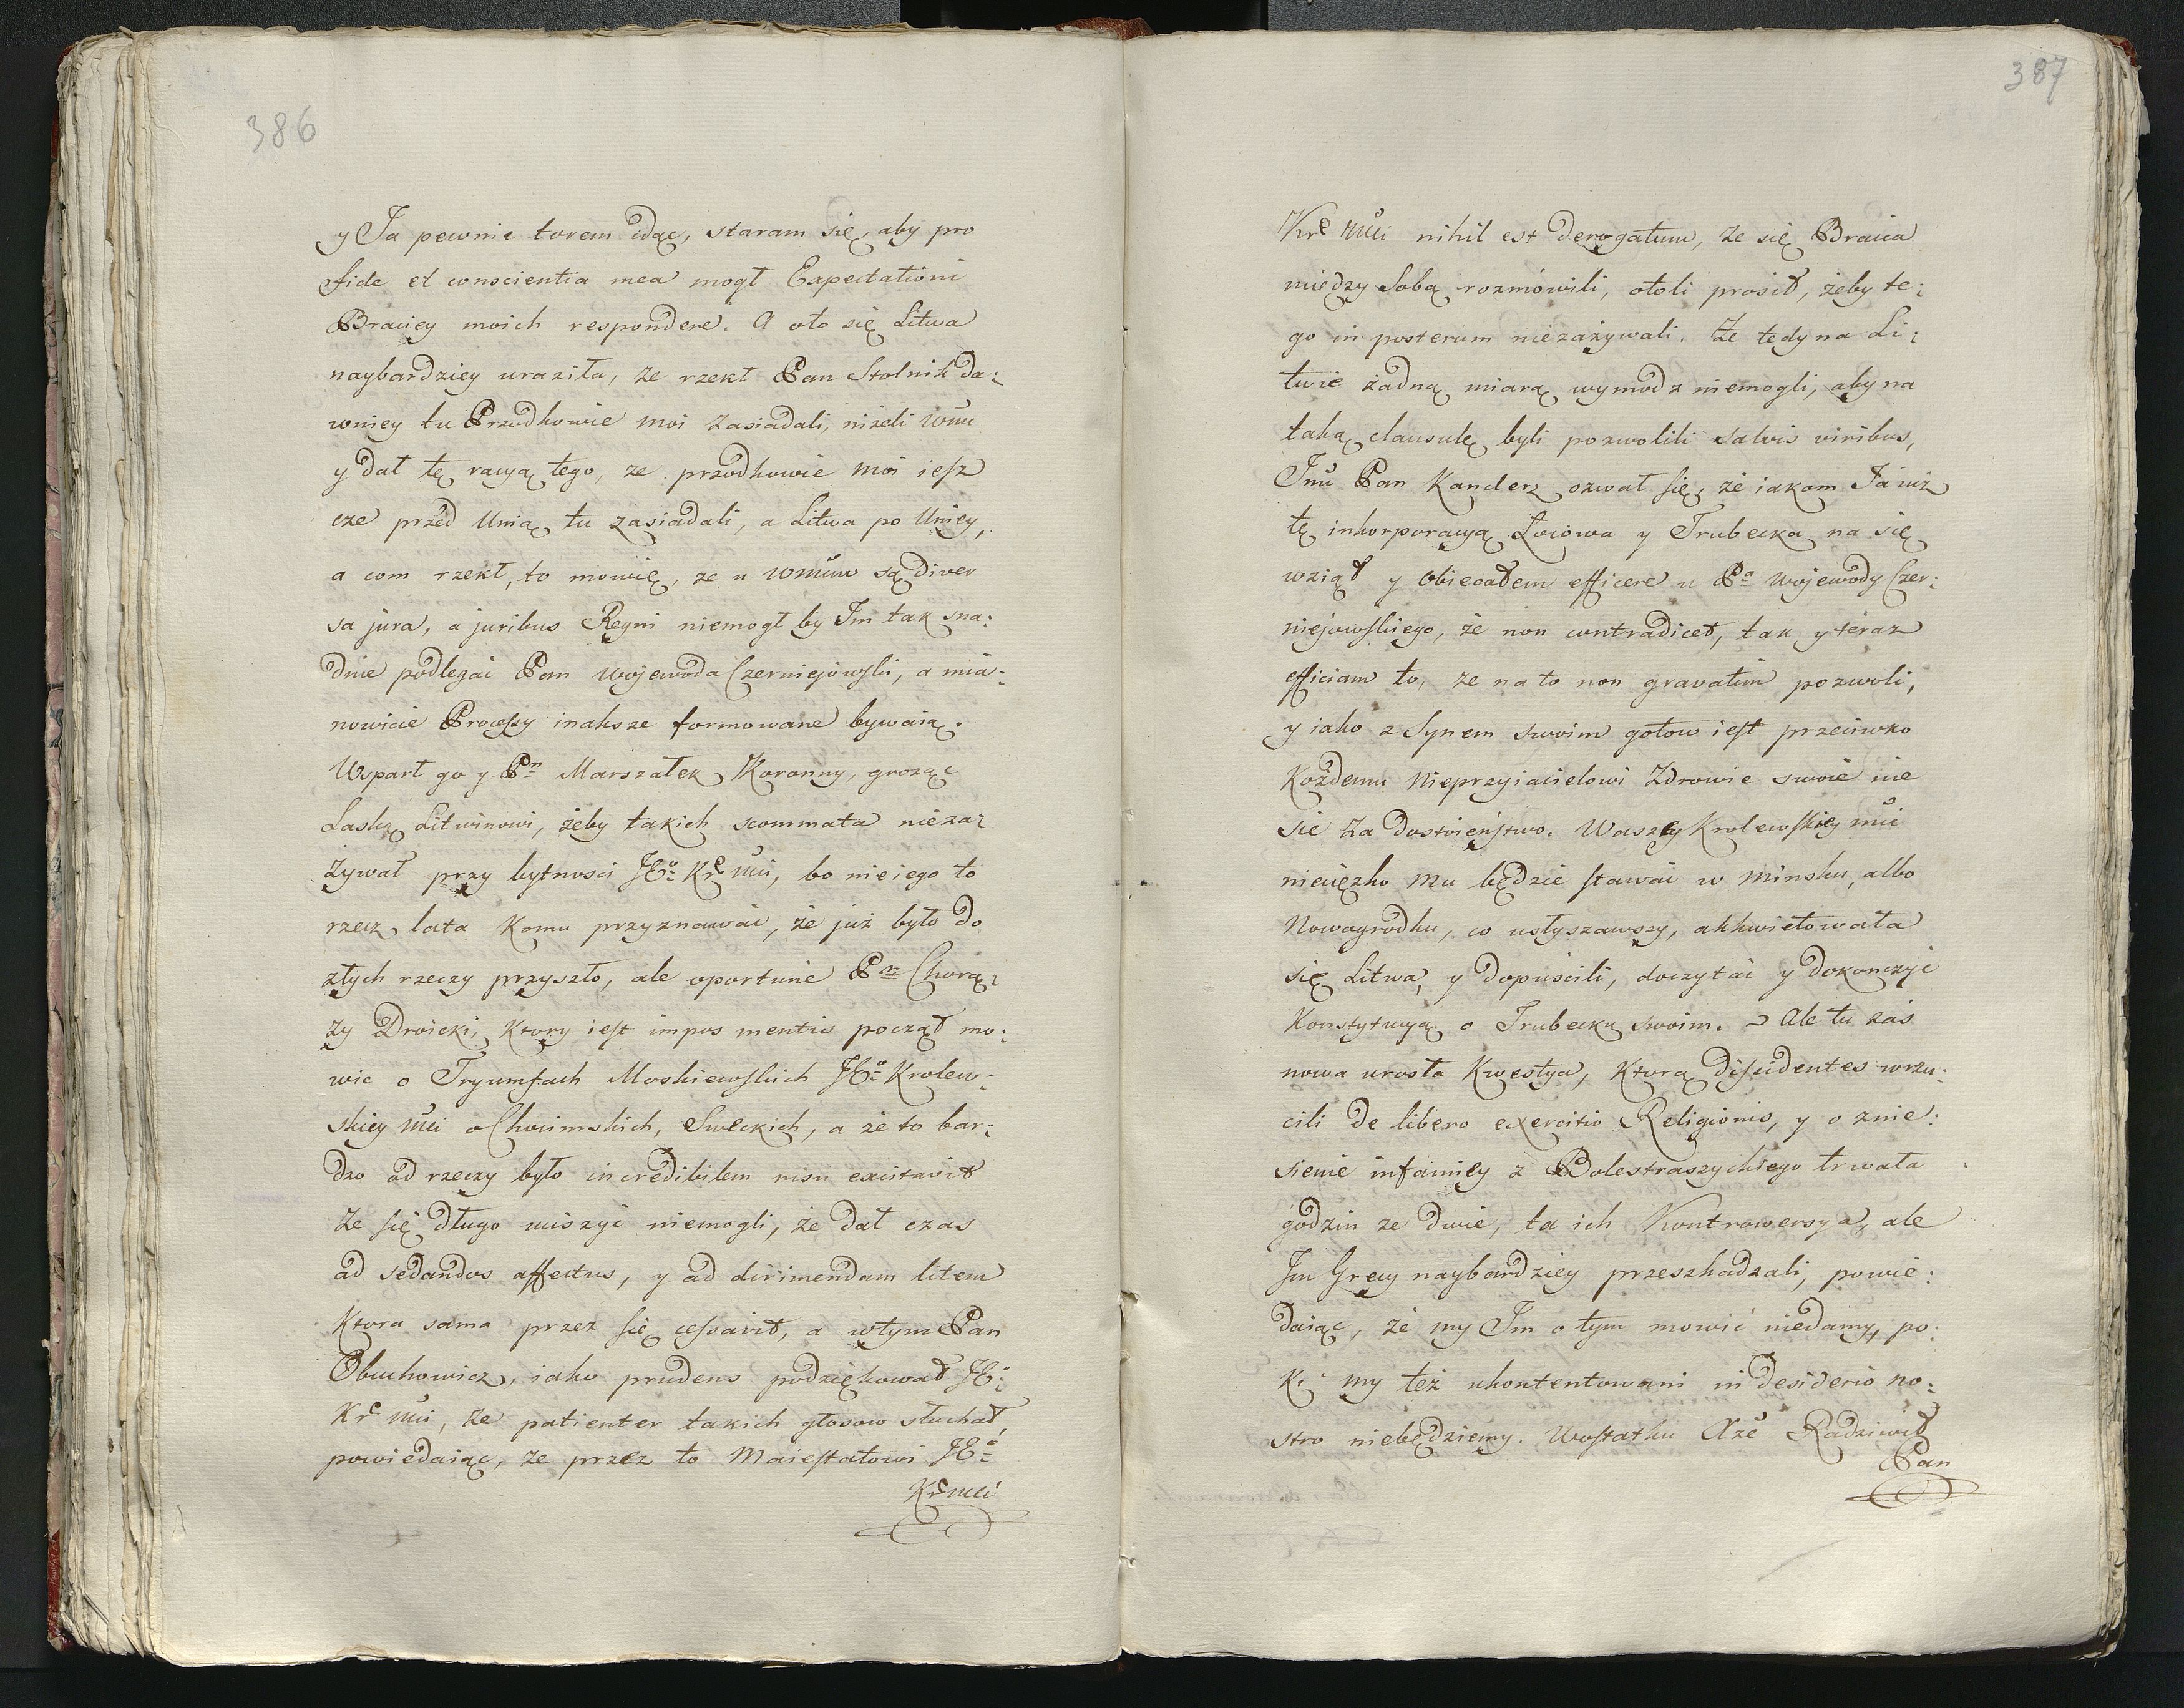 386
y Ja pewnie torem idąc, staram się, aby pro
fide et conscientia mea mogł Expectationi
Braciey moich respondere. A oto się Litwa
naybardziey uraziła, ze rzekł Pan Stolnik da:
wniey tu Przodkowie moi zasiadali, niżeli Wm
y dał tę racyą tego, ze przodkowie moi iesz
cze przed Unią tu zasiadali, a Litwa po Uniey,
a com rzekł, to mowię, ze u WMmw są diver
sa jura, a juribus Regni niemogł by Im tak sna:
dnie podlegać Pan Wojewoda Czerniejowski, a mia:
nowicie Processy inaksze formowane bywaią.
Wsparł go y Pn Marszałek Koronny, grożąc
Laską Litwinowi, żeby takich scommata nieza:
żywał przy bytnosci JEo Kr Mci, bo nie iego to
rzecz lata Komu przyznawać, że już było do
złych rzeczy przyszło, ale oportune Pn Chorą:
ży Droicki, Ktory iest impos mentis począł mo:
wic o Tryumfach Moskiewskich JEo Krolew:
skiey Mci o Chocimskich, Sweckich, a że to bar:
dzo od rzeczy było incredibilem risu excitavit
że się długo uciszyć niemogli, że dał czas
ad sedandos affectus, y ad dirimendam litem
Ktora sama przez się cessavit, a wtym Pan
Obuchowicz, iako prudens podziękował JEo
Kr Mci, że patienter takich głosow słuchał,
powiedaiąc, ze przez to Maiestatowi JEo
Kr Mci
387
Kr Mci nihil est derogatum, że się Bracia
między Sobą rozmówili, otoli prosił, żeby te:
go in posterum niezażywali. Że tedy na Li:
twie żadną miarą wymodz niemogli, aby na
taką clausulę byli pozwolili salvis viribus,
Jmć Pan Kanclerz ozwał się, że iakom Ja iuż
tę inkorporacyą Łoiowa y Trubecka na się
wziął y Obiecałem efficere u Pa Wojewody Czer:
niejowskiego, że non contradicet, tak y teraz
efficiam to, że na to non gravatim pozwoli,
y iako z Synem swoim gotow iest przeciwko
Kożdemu Nieprzyiacielowi Zdrowie swoie nie
sie za dostoieństwo. Waszey Krolewskiey Mci
nieciężko Mu będzie stawać w Minsku, albo
Nowogrodku, co usłyszawszy, akkwietowała
się Litwa, y dopuścili, doczytać y dokonczyć
Konstytucyą o Trubecku swoim. Ale tu zás
nowa urosła Kwestya, Ktorą dissidentes wrzu:
cili de libero exercitio Religionis, y o znie:
sienie infamiey z Bolestraszyckiego trwała
godzin ze dwie, ta ich Kontrowersya, ale
Im Grecy naybardziey przeszkadzali, powie:
daiąc, że my Im o tym mowić niedamy, po:
Ki my też ukontentowani in desiderio no:
stro niebędziemy. Wostatku Xże Radziwił
Pan